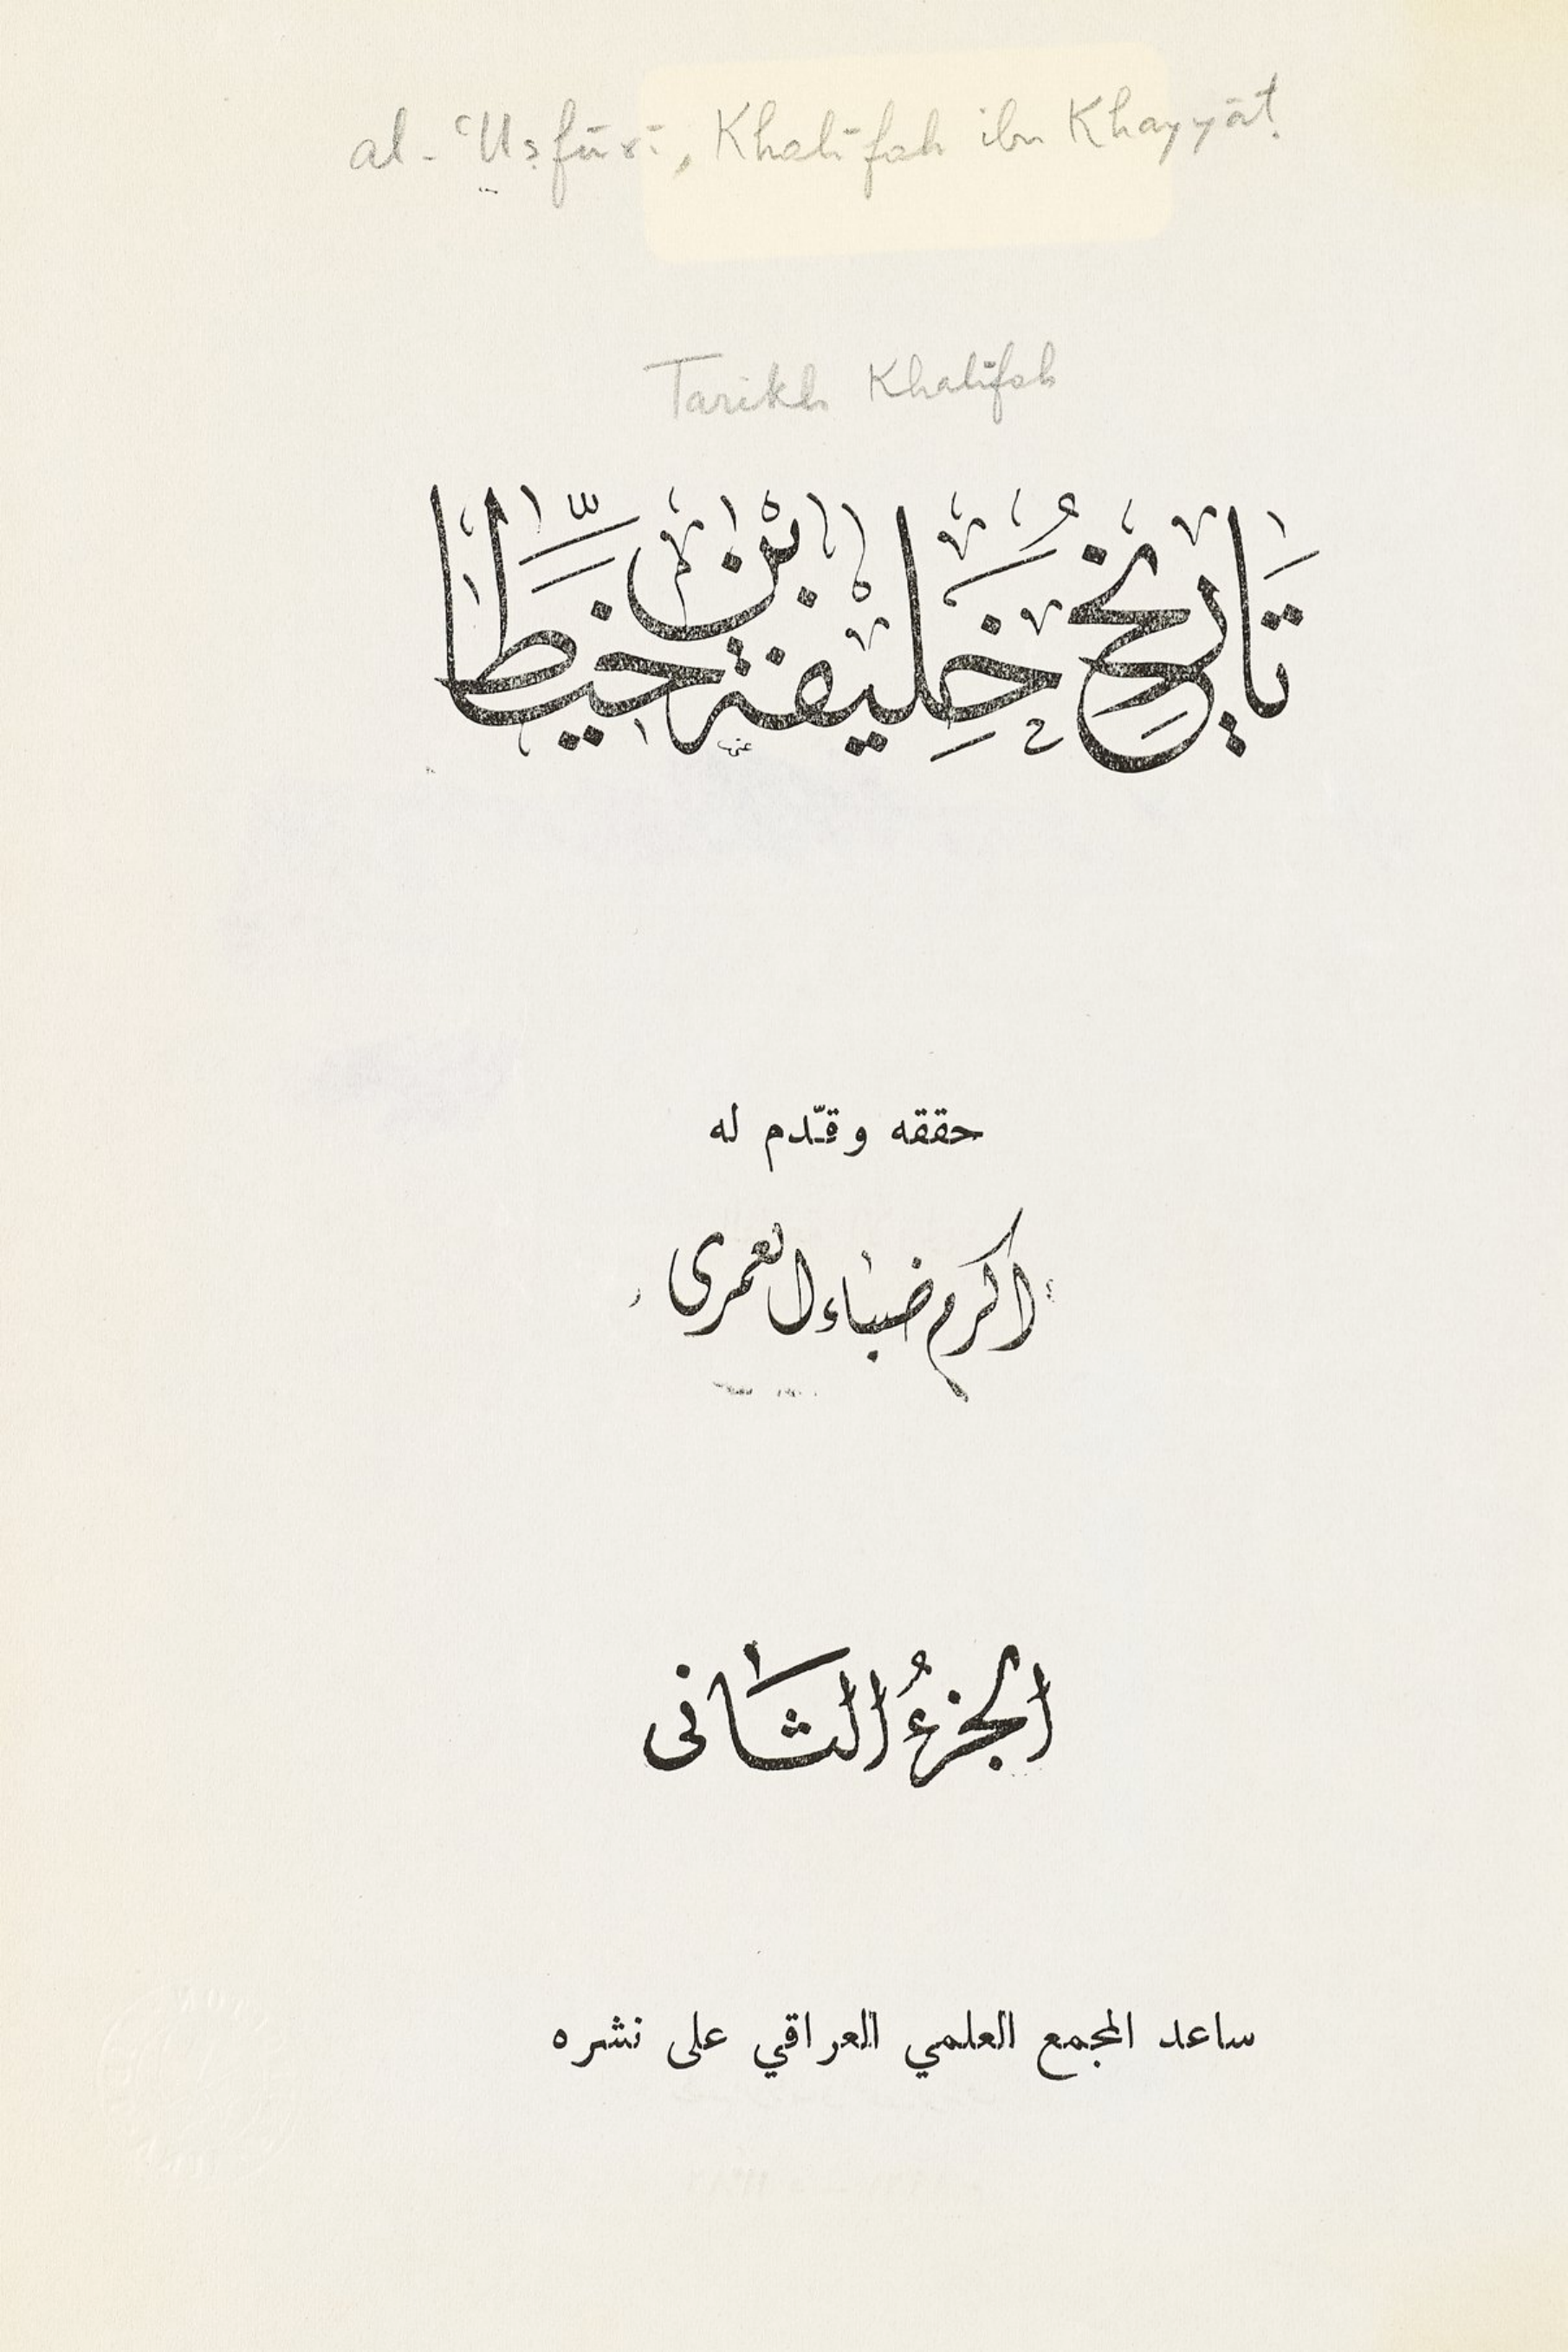 al-ʿUṣfūrī, Khalīfah ibn Khayyāṭ
Tarikh Khalifah
تَاريخ خَلِيفة بْن خيَّاط
حققه وقـّدم له
اكرم ضياء العمرى
الجزءُ الثَانى
ساعد المجمع العلمي العراقي على نشره